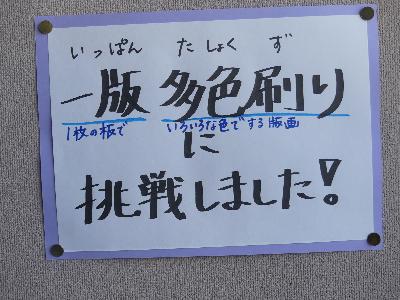 いっぱん たしょく ず
一版 多色刷り
1枚の板で いろいろな色でする版画
に
挑戦しました!